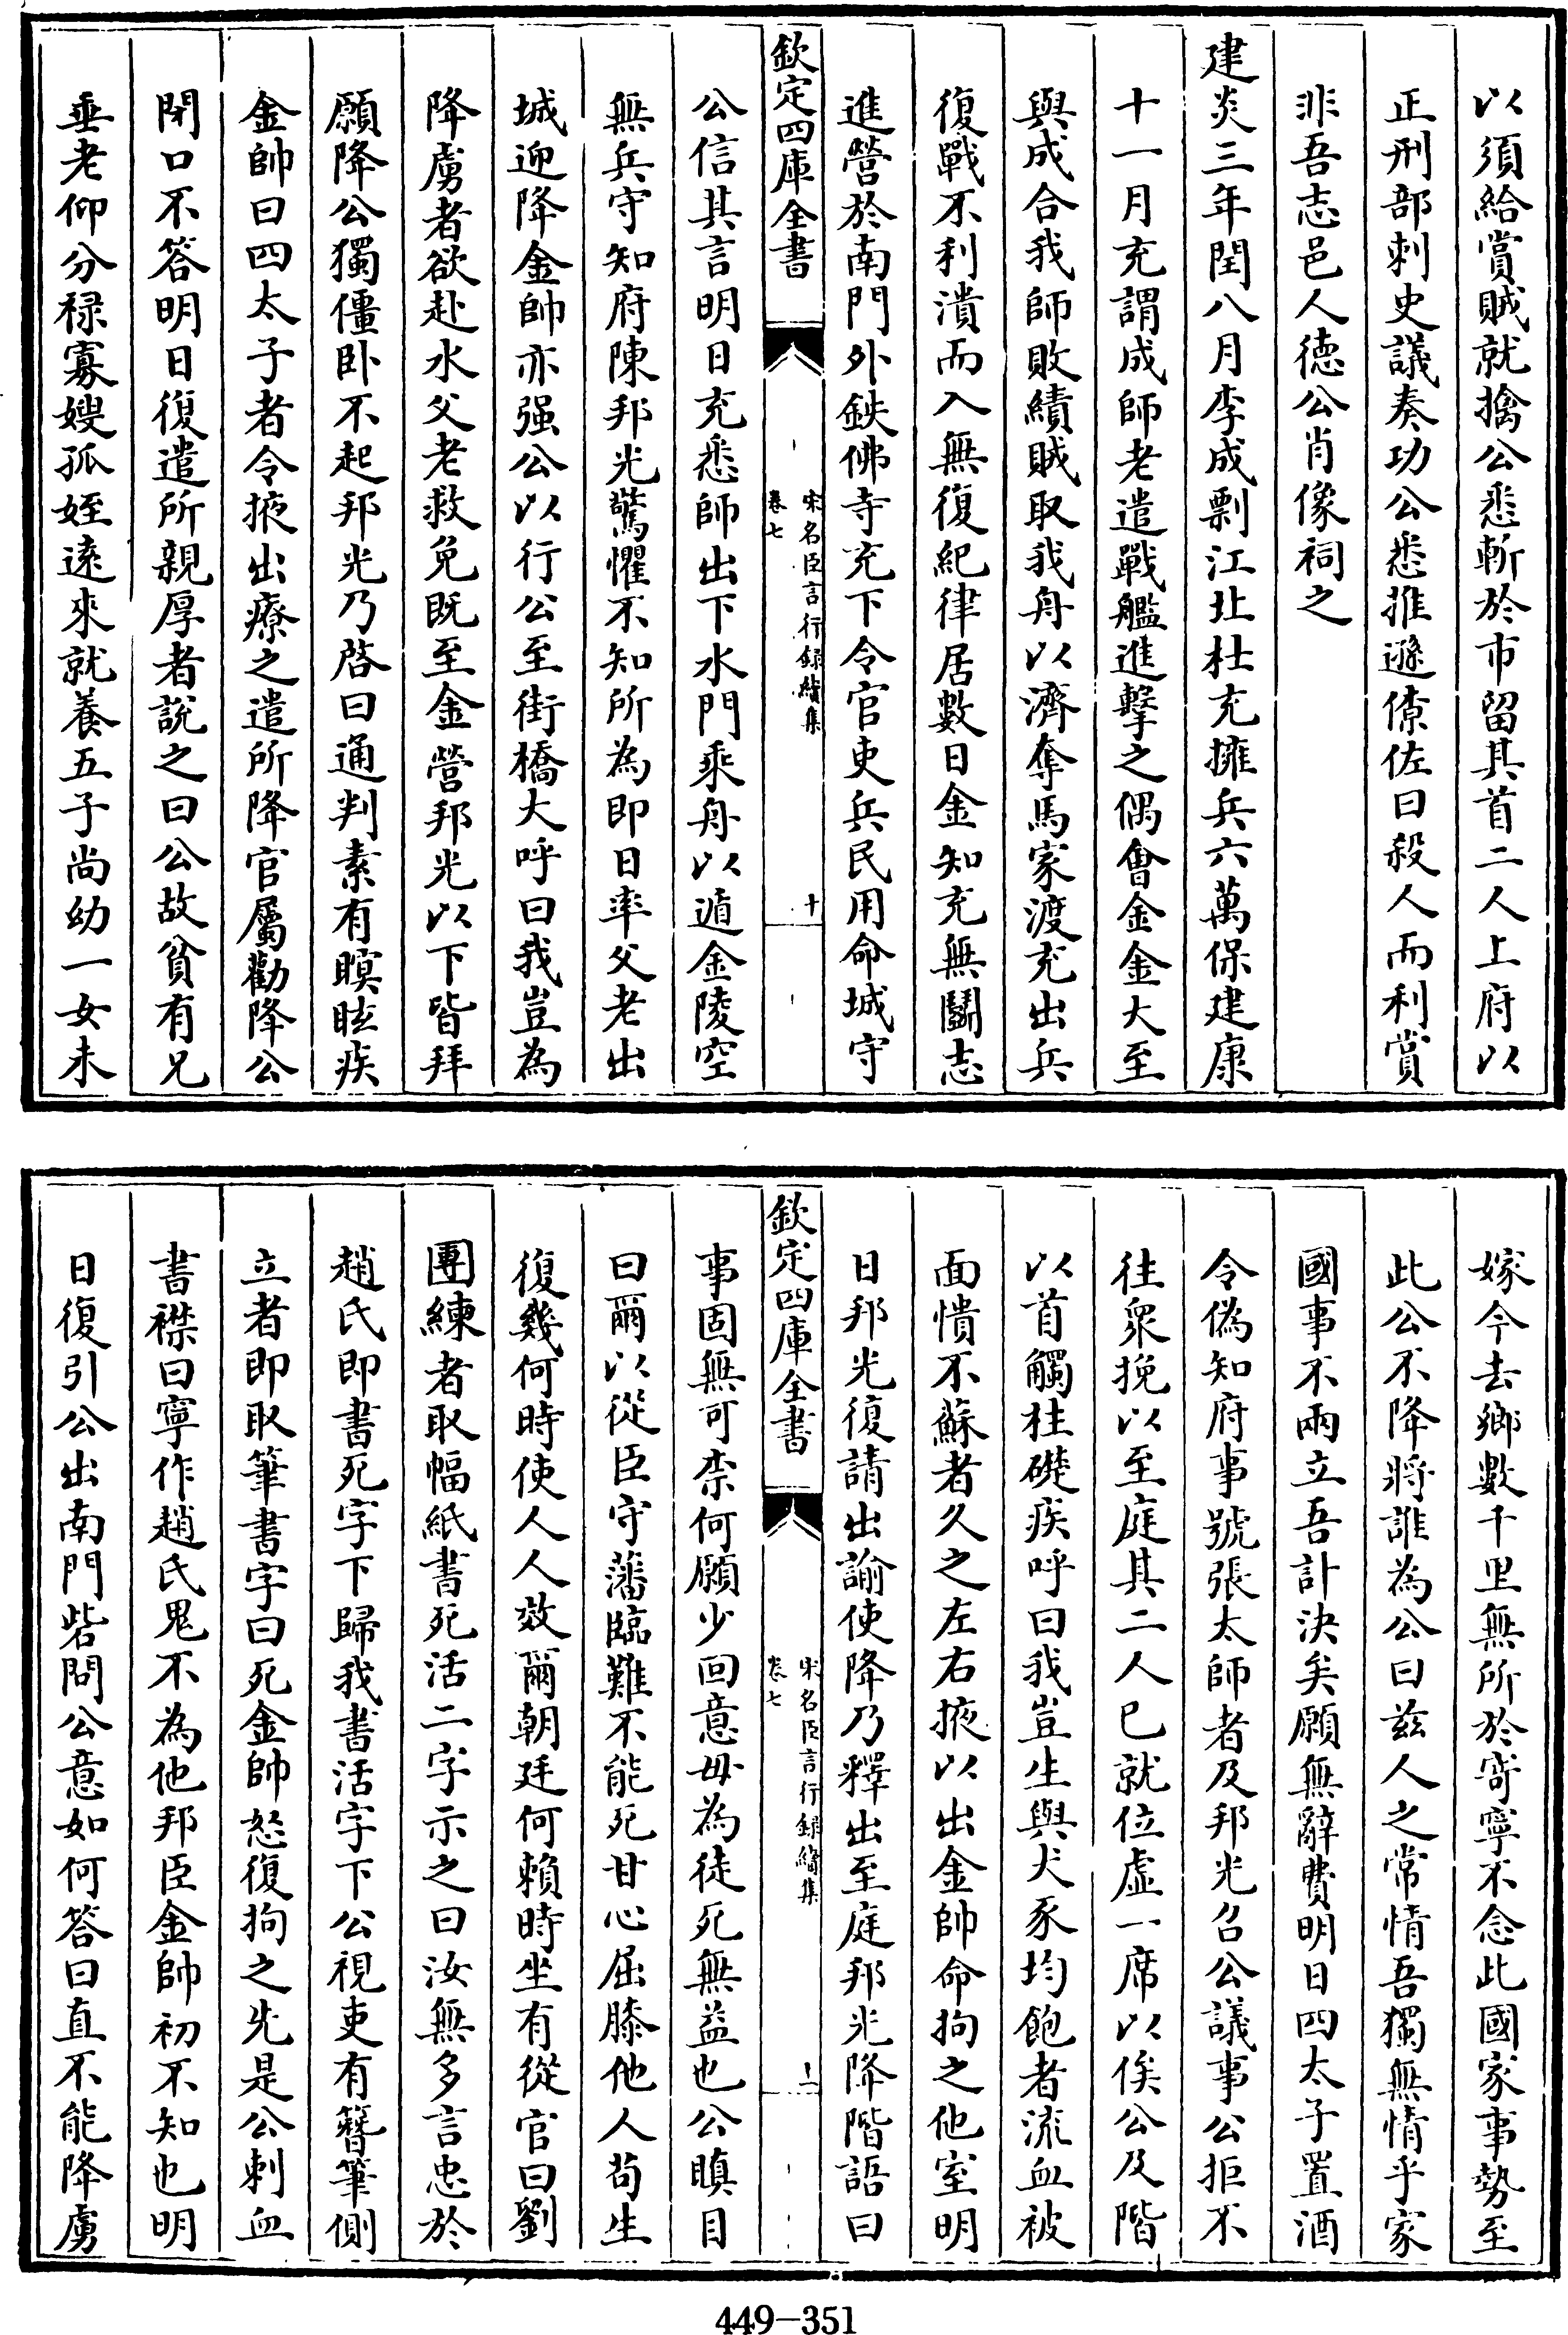 以須給賞賊就擒公悉斬於市留其首二人上府以
正刑部刺史議奏功公悉推遜僚佐曰殺人而利賞
非吾志邑人德公肖像祠之
建炎三年閏八月李成剽江北杜充擁兵六萬保建康
十一月充謂成師老遣戰艦進擊之偶會金金大至
與成合我師敗績賊取我舟以濟奪馬家渡充出兵
復戰不利潰而入無復紀律居數日金知充無鬬志
進營於南門外鉄佛寺充下令官吏兵民用命城守
欽定四庫全書
宋名臣言行録續集
卷七
十
公信其言明日充悉師出下水門乘舟以遁金陵空
無兵守知府陳邦光驚懼不知所為即日率父老出
城迎降金帥亦强公以行公至街橋大呼曰我豈為
降虜者欲赴水父老救免既至金營邦光以下皆拜
願降公獨僵卧不起邦光乃啓曰通判素有瞑眩疾
金帥曰四太子者令掖出療之遣所降官屬勸降公
閉口不答明日復遣所親厚者說之曰公故貧有兄
垂老仰分禄寡嫂孤姪逺來就養五子尚幼一女未
嫁今去鄉數千里無所於寄寧不念此國家事勢至
此公不降將誰為公曰兹人之常情吾獨無情乎家
國事不兩立吾計決矣願無辭費明日四太子置酒
令偽知府事號張太師者及邦光召公議事公拒不
往衆挽以至庭其二人已就位虛一席以俟公及階
以首觸柱礎疾呼曰我豈生與犬豕均飽者流血被
面憒不蘇者久之左右掖以出金帥命拘之他室明
日邦光復請出諭使降乃釋出至庭邦光降階語曰
欽定四庫全書
宋名臣言行録續集
卷七
十一
事固無可柰何願少回意毋為徒死無益也公瞋目
曰爾以從臣守藩臨難不能死甘心屈膝他人苟生
復幾何時使人人效爾朝廷何賴時坐有從官曰劉
團練者取幅紙書死活二字示之曰汝無多言忠於
趙氏即書死字下歸我書活字下公視吏有簪筆側
立者即取筆書字曰死金帥怒復拘之先是公刺血
書襟曰寧作趙氏鬼不為他邦臣金帥初不知也明
日復引公出南門砦問公意如何答曰直不能降虜
449-351